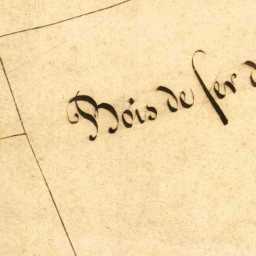 Bois de fer d